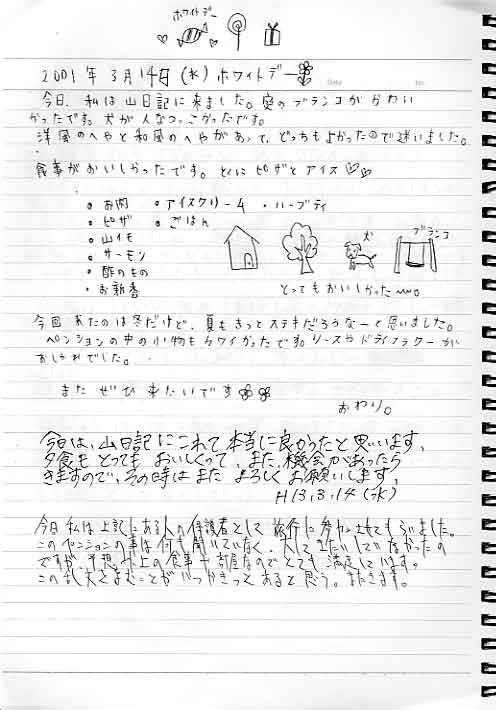 ホワイトデー
2001年3月14日(水)ホワイトデー
Date No.
今日、私は山日記に来ました。庭のブランコがかわい
かったです。犬が人なつっこかったです。
洋風のへやと和風のへやがあって、どっちもよかったので迷いました。
食事がおいしかったです。とくにピザとアイス
・お肉 ・アイスクリーム ・ハーブティ
・ピザ ・ごはん
・山イモ
・サーモン
・酢のもの
・お新香
犬 ブランコ
とってもおいしかったー。
今回来たのは冬だけど、夏もきっとステキだろうなーと思いました。
ペンションの中の小物もカワイかったです。リースやドライフラワーが
おしゃれでした。
またぜひ来たいです
おわり。
今日は、山日記にこれて本当に良かったと思います、
夕食もとってもおいしくって、また機会があったら
きますので、その時はまたよろしくお願いします、
H13,3,14(水)
今日私は上記にある人の保護者として旅行に参加させてもらいました。
このペンションの事は何も聞いていなく、大してきたいしてなかったの
ですが、予想以上の食事、部屋なのでとても満足しています。
この乱文をよむことがいつかきっとあると思う。またきます。